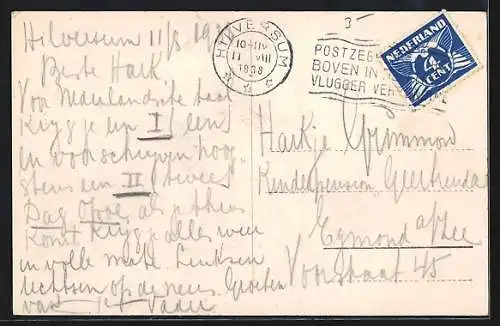 Hilversum 11/8 19
Beste Hark,
Voor Nederlandsche taal
Krijg je een I (een)
en voor schrijven hoog-
stens een II (twee)
Dag Oore, als je thuis
komt krijg je alles weer
in volle mate. Links en
rechts en op de neus. Groeten
van je Vader.
HILVERSUM
10-11V
11 VIII
1938
3-
POSTZE
BOVEN IN
VLUGGER VER
NEDERLAND
4
CENT
Harkje Grimmon
Kinderpension Geertruida
Egmond a/Zee
Voorstraat 45